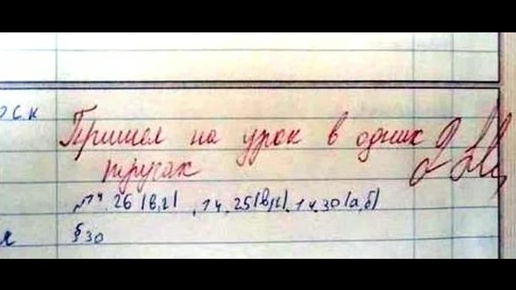 Пришел на урок в одних
трусах
№14.26(в,г), 14.25(в,г), 14.30(а,б)
§30